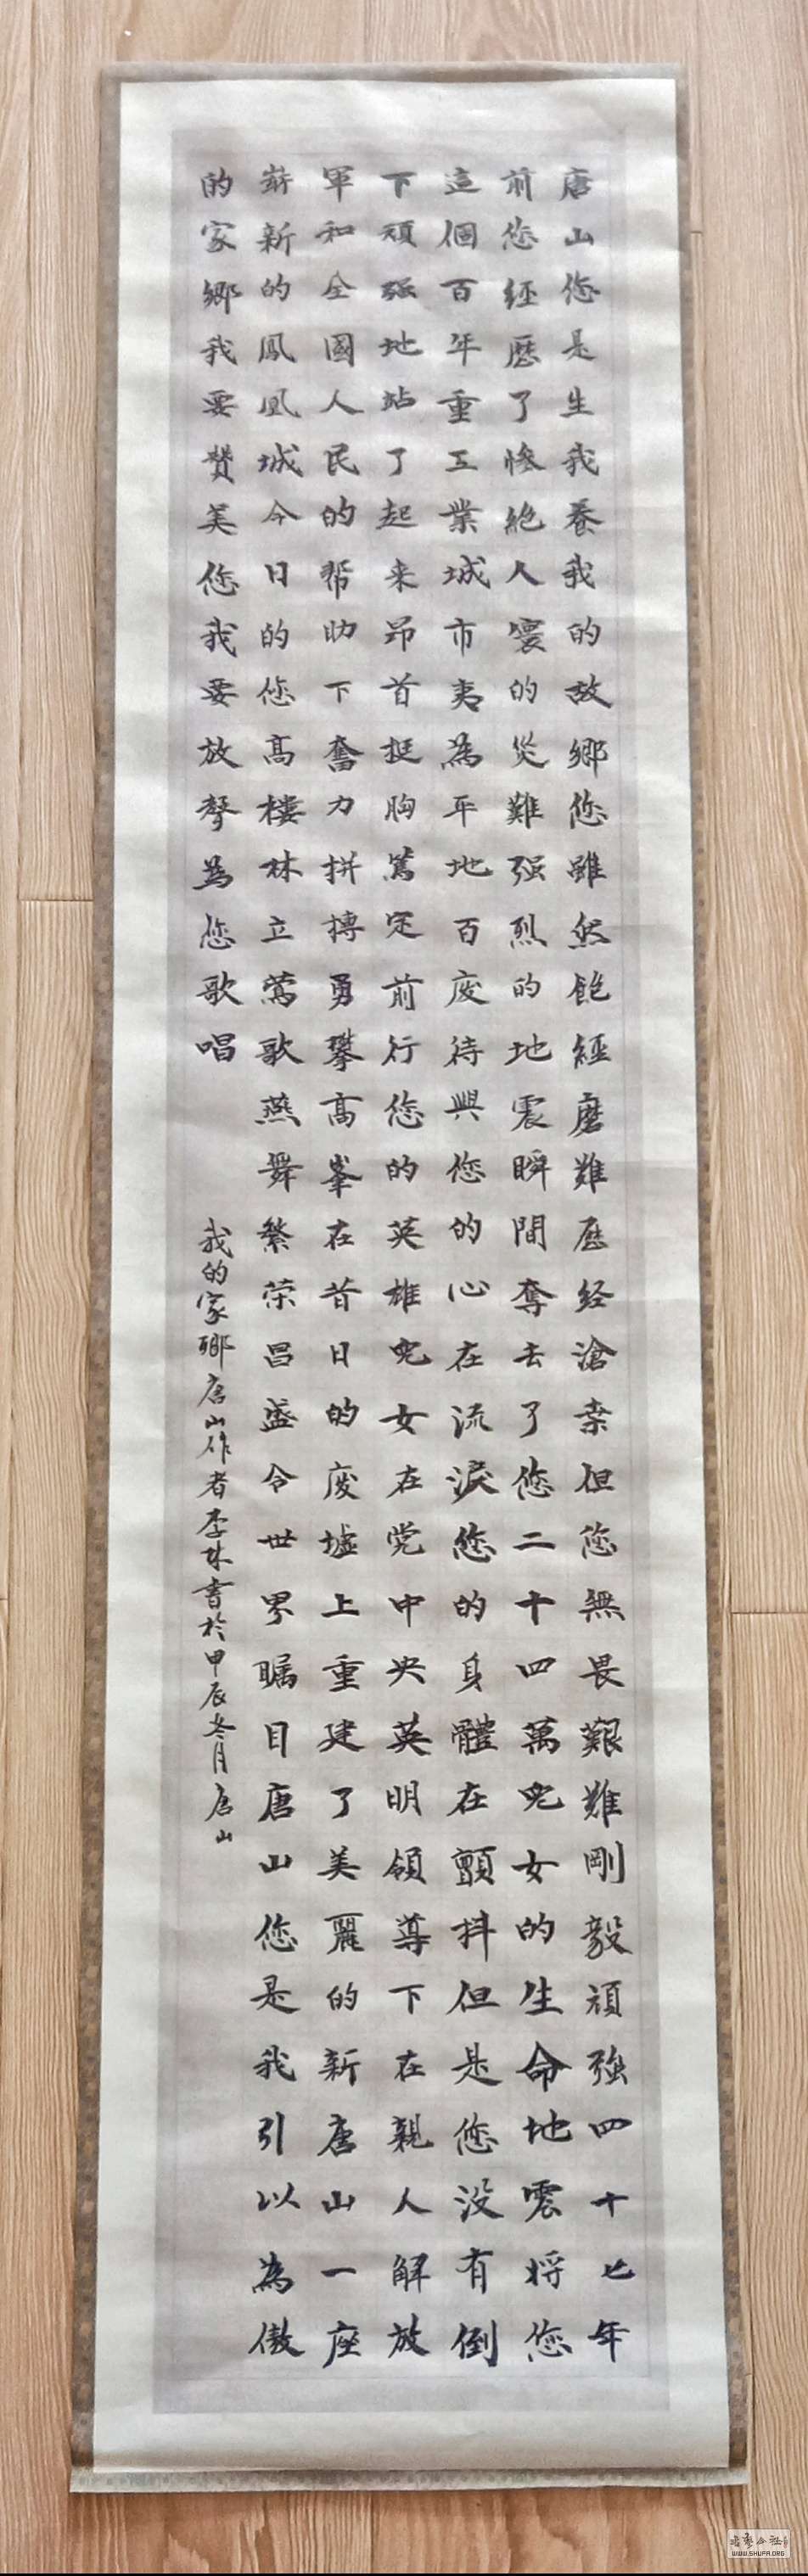 唐山您是生我養我的故鄉您雖然飽經磨難歷经滄桑但您無畏艱難剛毅頑強四十七年
前您經歷了惨絶人寰的災難强烈的地震瞬間奪去了您二十四萬児女的生命地震将您
這個百年重工業城市夷為平地百废待興您的心在流淚您的身體在顫抖但是您没有倒
下頑强地站了起来昂首挺胸篤定前行您的英雄児女在党中央英明領導下在親人解放
軍和全國人民的帮助下奮力拼搏勇攀高峯在昔日的废墟上重建了美麗的新唐山一座
嶄新的鳳凰城今日的您高樓林立鶯歌燕舞繁荣昌盛令世界瞩目唐山您是我引以為傲
的家鄉我要贊美您我要放聲為您歌唱
我的家鄉唐山作者李林書於甲辰冬月唐山
WWW.SHUFA.ORG